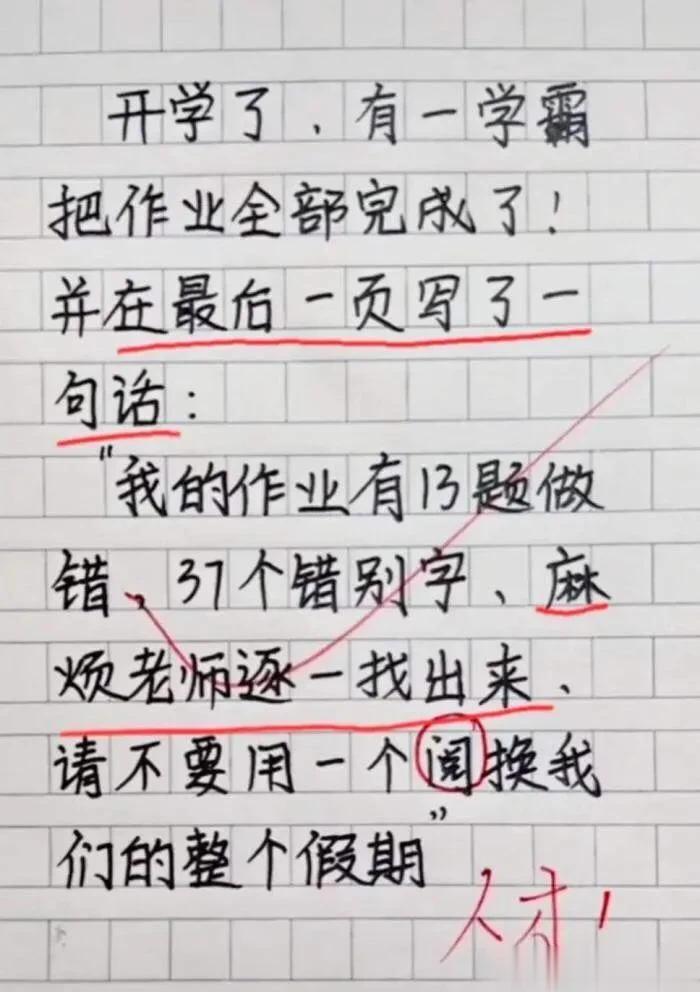 开学了,有一学霸
把作业全部完成了!
并在最后一页写了一
句话:
"我的作业有13题做
错,37个错别字、麻
烦老师逐一找出来、
请不要用一个阅换我
们的整个假期"
人才!